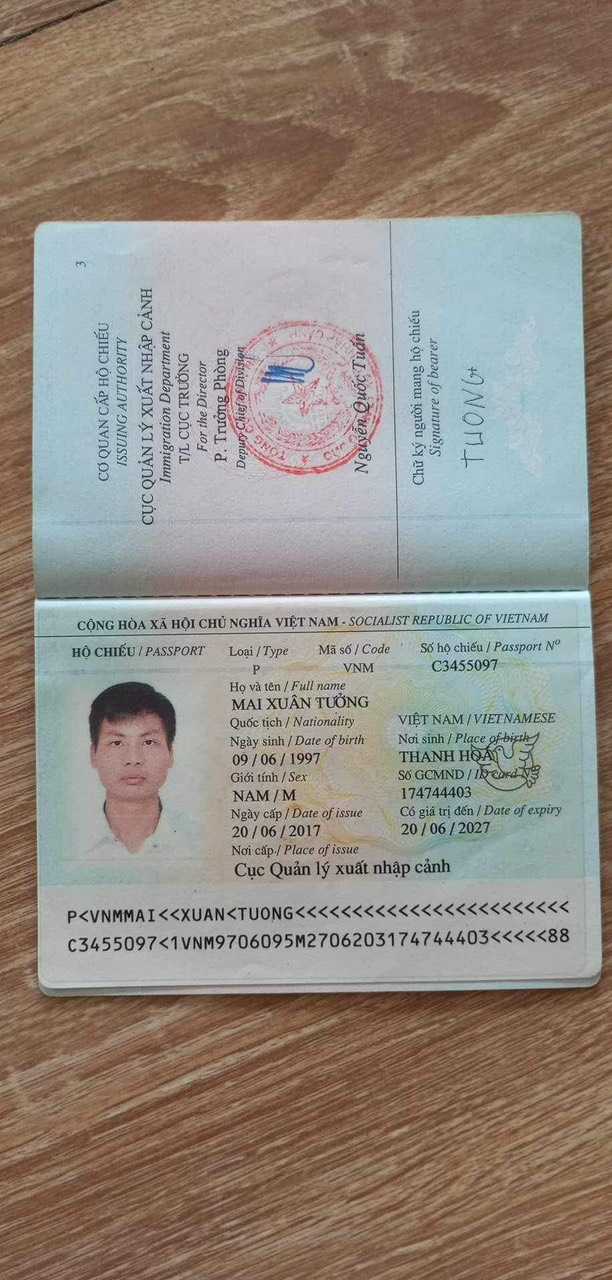 3
CƠ QUAN CẤP HỘ CHIẾU
ISSUING AUTHORITY
CỤC QUẢN LÝ XUẤT NHẬP CẢNH
Immigration Department
T/L CỤC TRƯỞNG
For the Director
P. Trưởng Phòng
Deputy Chief of Division
Nguyễn Quốc Tuấn
Chữ ký người mang hộ chiếu
Signature of bearer
TUONG
CỘNG HÒA XÃ HỘI CHỦ NGHĨA VIỆT NAM - SOCIALIST REPUBLIC OF VIETNAM
HỘ CHIẾU / PASSPORT Loại / Type Mã số / Code Số hộ chiếu / Passport Nº
P VNM C3455097
Họ và tên / Full name
MAI XUÂN TƯỞNG
Quốc tịch / Nationality VIỆT NAM / VIETNAMESE
Ngày sinh / Date of birth Nơi sinh / Place of birth
09 / 06 / 1997 THANH HÓA
Giới tính / Sex Số GCMND / ID card Nº
NAM / M 174744403
Ngày cấp / Date of issue Có giá trị đến / Date of expiry
20 / 06 / 2017 20 / 06 / 2027
Nơi cấp / Place of issue
Cục Quản lý xuất nhập cảnh
P<VNMMAI<<XUAN<TUONG<<<<<<<<<<<<<<<<<<<<<<<<
C3455097<1VNM9706095M2706203174744403<<<<<88